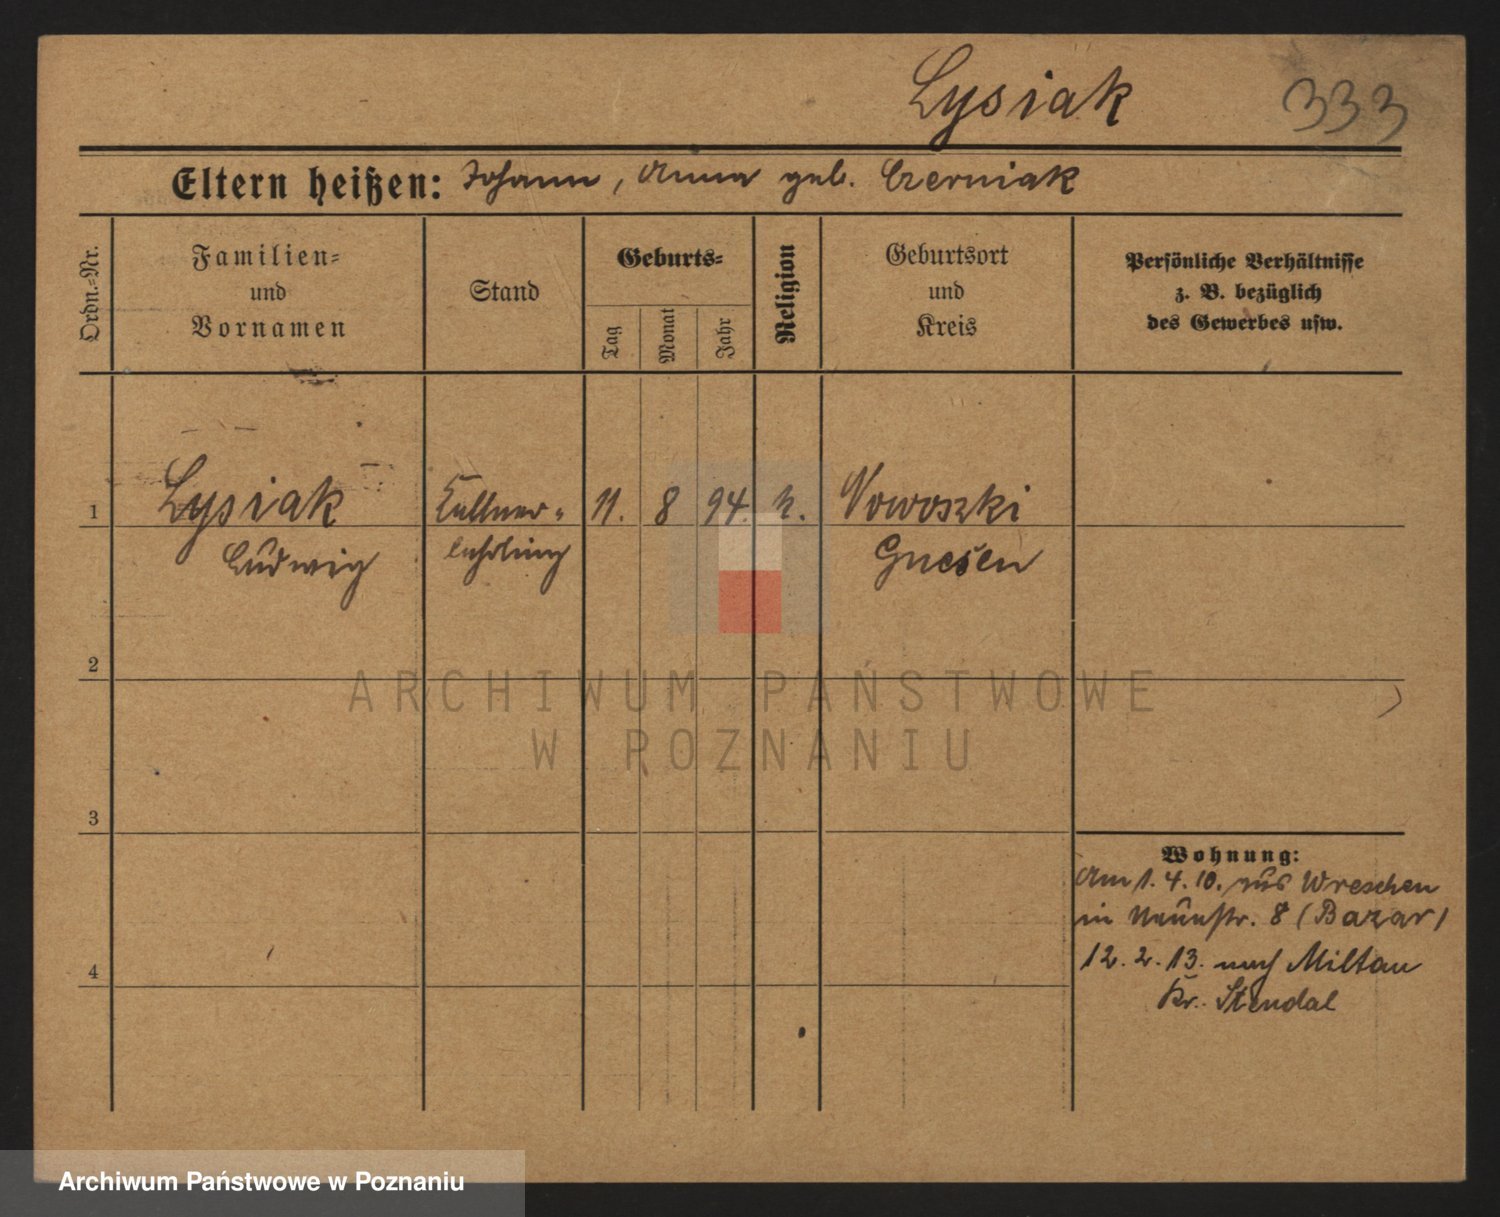 Lysiak 333
Eltern heißen: Johann, Anna geb. Czerniak
Ordn.-Nr.
Familien-
und
Vornamen
Stand
Geburts-
Tag
Monat
Jahr
Religion
Geburtsort
und
Kreis
Persönliche Verhältnisse
z. B. bezüglich
des Gewerbes usw.
1 Lysiak Kellner- 11. 8 94. k. Nowoszki
Ludwig lehrling Gnesen
2
ARCHIWUM PAŃSTWOWE
W POZNANIU
3
Wohnung:
Am 1. 4. 10. aus Wreschen
in Neuestr. 8 (Bazar)
4 12. 2. 13. nach Miltau
Kr. Stendal
Archiwum Państwowe w Poznaniu